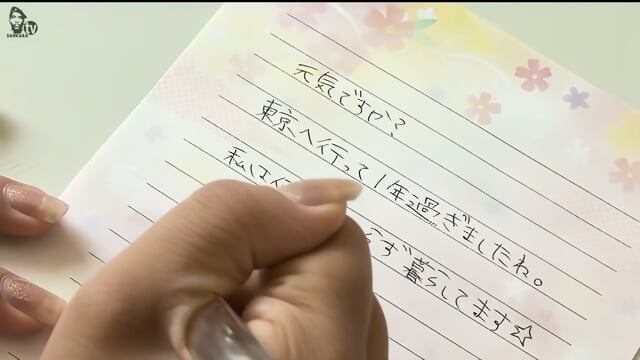 SANKARA TV
元気ですか?
東京へ行って1年過ぎましたね。
私は らず暮らしてます☆